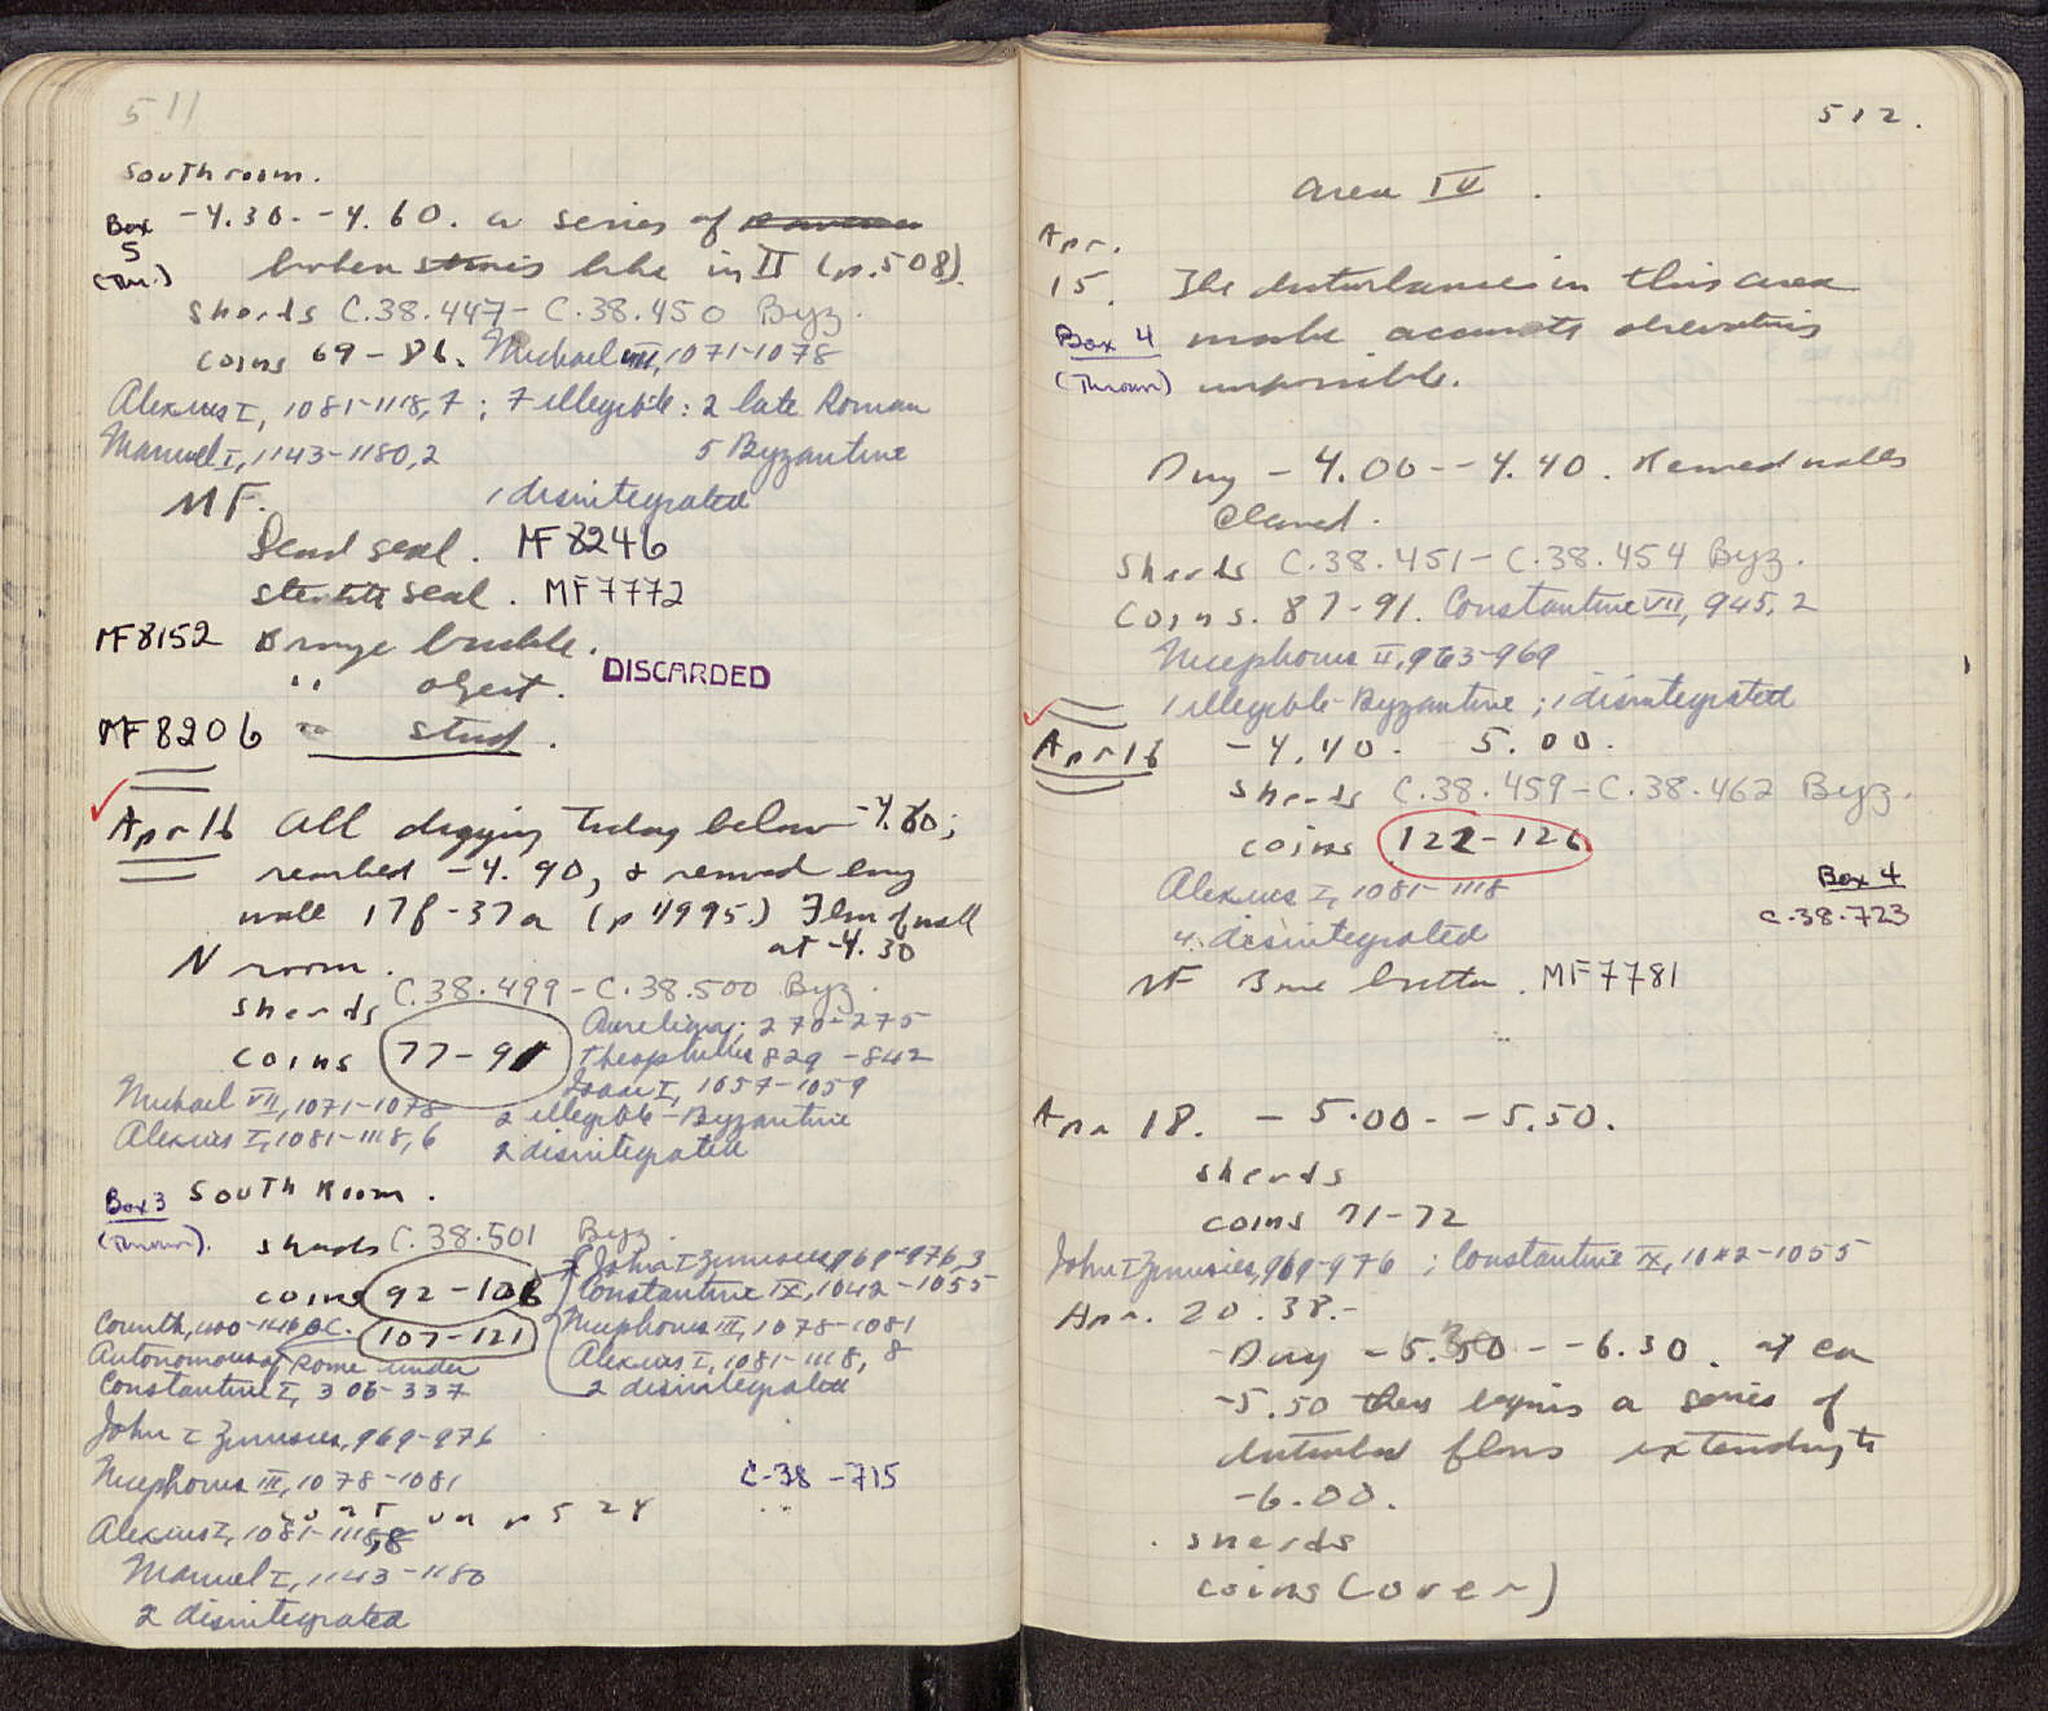 511
South room.
Box 5 (Thr.)
-4.30 - -4.60. a series of
broken stones like in II (p. 508).
sherds C.38.447 - C.38.450 Byz.
coins 69-86. Michael VII, 1071-1078
Alexius I, 1081-1118, 7; 7 illegible: 2 late Roman
Manuel I, 1143-1180, 2 5 Byzantine
MF. 1 disintegrated
Lead seal. MF 8246
steatite seal. MF 7772
MF 8152 Bronze buckle.
" object. DISCARDED
MF 8206 " stud.
Apr 16 All digging today below -4.60;
reached -4.90, & removed
wall 17f-37a (p 499 ) of wall
at -4.30
N room.
sherds C.38.499 - C.38.500 Byz.
coins 77-91 Aurelian, 270-275
Theophilus 829-842
Isaac I, 1057-1059
Michael VII, 1071-1078 2 illegible-Byzantine
Alexius I, 1081-1118, 6 2 disintegrated
Box 3 South Room.
(Thrown). sherds C.38.501 Byz.
coins 92-106 John I Zimisces, 969-976, 3
Constantine IX, 1042-1055
Corinth, B.C. 107-121 Nicephorus III, 1078-1081
Autonomous of Rome under Alexius I, 1081-1118, 8
Constantine I, 306-337 2 disintegrated
John I Zimisces, 969-976
Nicephorus III, 1078-1081 C-38-715
cont on p 524
Alexius I, 1081-1118, 8
Manuel I, 1143-1180
2 disintegrated
512.
Area IV.
Apr.
15. The disturbances in this area
Box 4 make accurate observations
(Thrown) impossible.
Dug -4.00 - -4.40. Removed walls
cleaned.
Sherds C.38.451 - C.38.454 Byz.
Coins. 87-91. Constantine VII, 945, 2
Nicephorus II, 963-969
1 illegible-Byzantine; 1 disintegrated
Apr 16 -4.40 - 5.00.
sherds C.38.459 - C.38.462 Byz.
coins 122-126
Alexius I, 1081-1118 Box 4
C-38-723
4 disintegrated
MF Bone button. MF 7781
Apr 18. -5.00 - -5.50.
sherds
coins 71-72
John I Zimisces, 969-976; Constantine IX, 1042-1055
Apr. 20. 38.-
Dug -5.50 - -6.30. at ca
-5.50 there begins a series of
disturbed floors extending to
-6.00.
sherds
coins (over)